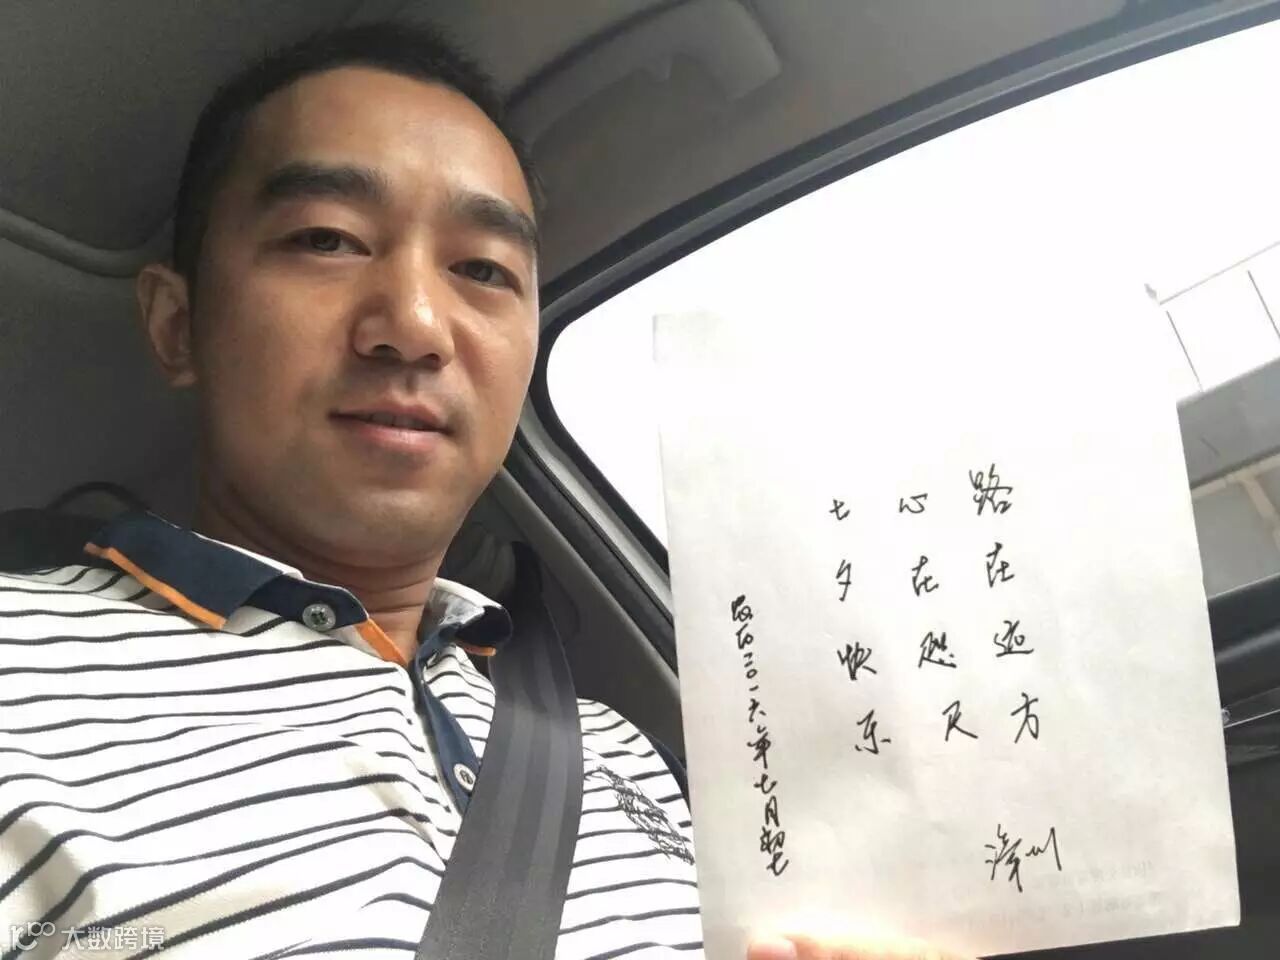 路在远方
心在咫尺
七夕快乐
漳州
农历二〇一六年七月初七
大数跨境